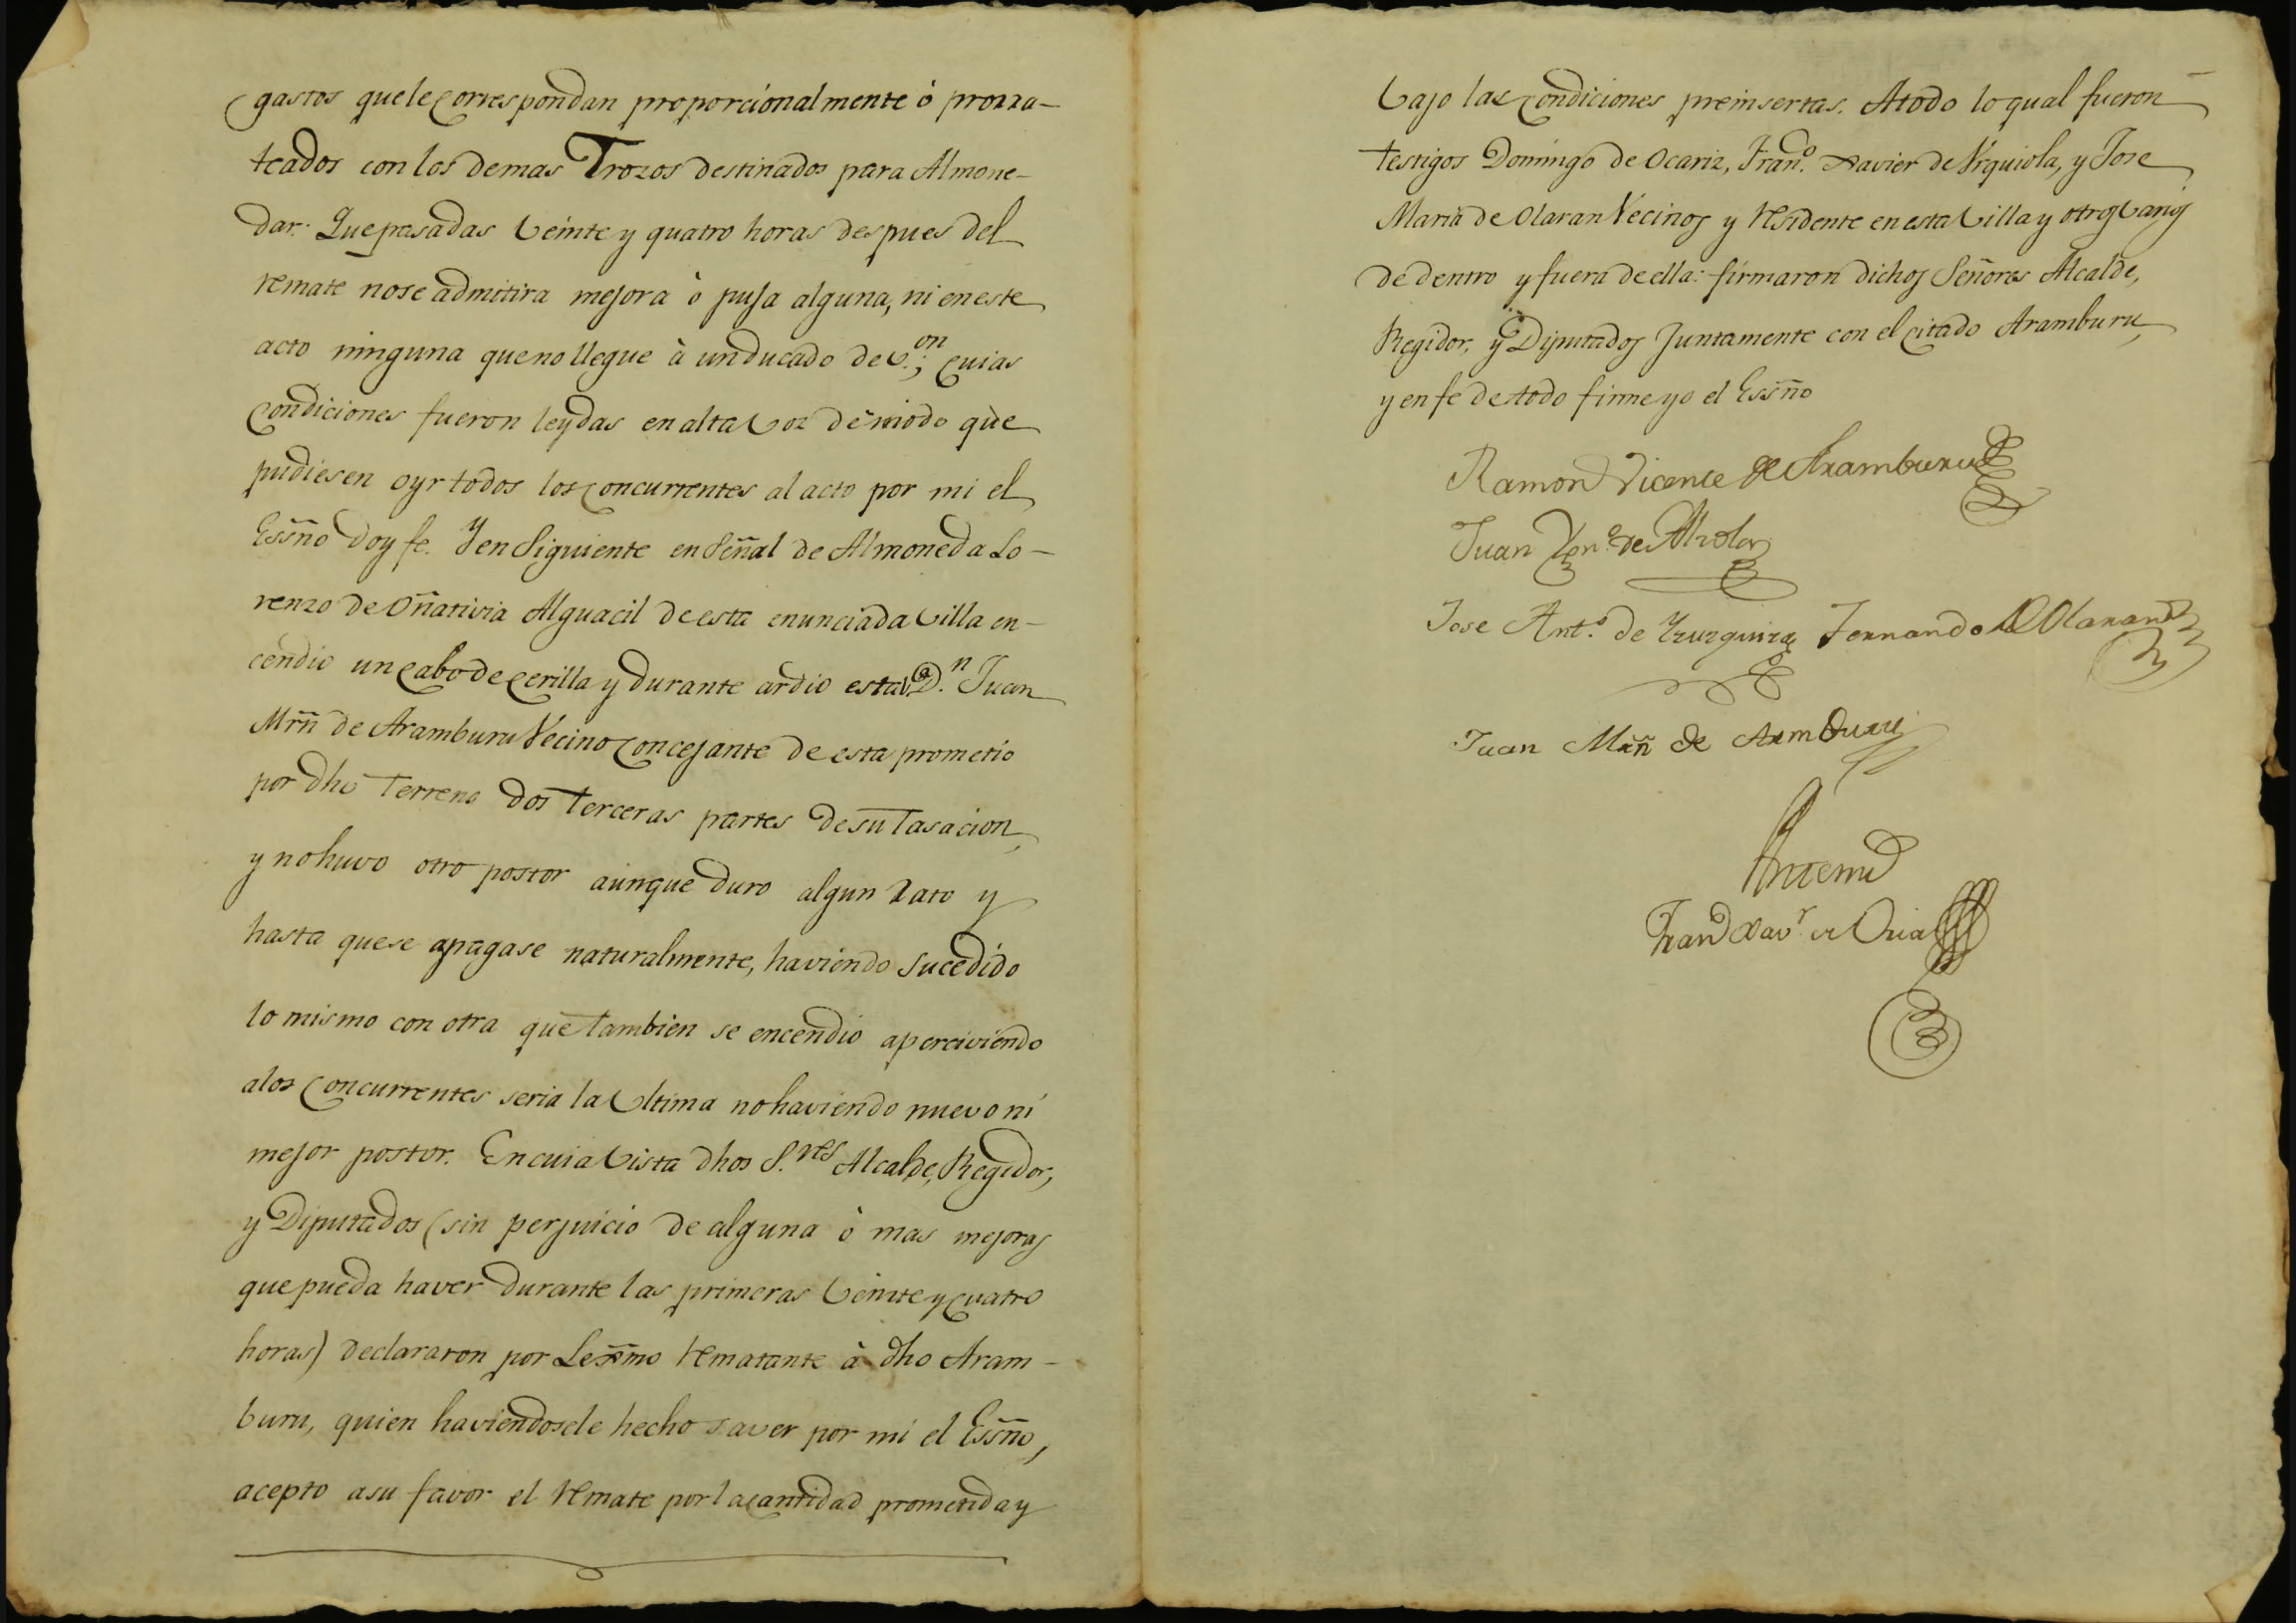 gastos que le correspondan proporcionalmente ò prorra-
teados con los demas Trozos destinados para Almone-
dar. Que pasadas veinte y quatro horas despues del
remate no se admitira mejora ò puja alguna, ni en este
acto ninguna que no llegue à un ducado de v.on; cuias
condiciones fueron leydas en alta voz de modo que
pudiesen oyr todos los concurrentes al acto por mi el
Essño doy fe. Y en Siguiente en Señal de Almoneda Lo-
renzo de Oñativia Alguacil de esta enunciada villa en-
cendio un cabo de cerilla y durante ardio esta D.n Juan
Mrñ de Aramburu Vecino concejante de esta prometio
por dho Terreno dos terceras partes de su Tasacion,
y no huvo otro postor aunque duro algun rato y
hasta que se apagase naturalmente, haviendo sucedido
lo mismo con otra que tambien se encendio aperciviendo
a los concurrentes seria la ultima no haviendo nuevo ni
mejor postor. En cuia vista dhos S.res Alcalde, Regidor,
y Diputados (sin perjuicio de alguna ò mas mejoras
que pueda haver durante las primeras veinte y cuatro
horas) declararon por Lexmo rematante à dho Aram-
buru, quien haviendosele hecho saver por mi el Essño,
acepto a su favor el remate por la cantidad prometida y
vajo las condiciones preinsertas. A todo lo qual fueron
testigos Domingo de Ocariz, Fran.co Xavier de Vrquiola, y Jose
Maria de Olaran Vecinos y residente en esta villa y otros varios
de dentro y fuera de ella: firmaron dichos Señores Alcalde,
Regidor, y Diputados Juntamente con el citado Aramburu,
y en fe de todo firme yo el Essño
Ramon Vicente de Aramburu
Juan de Alzola
Jose Ant.o de Yzuzquiza Fernando de Olaran
Juan Mrñ de Aramburu
Antemi
Fran.co Xav.r de Oria